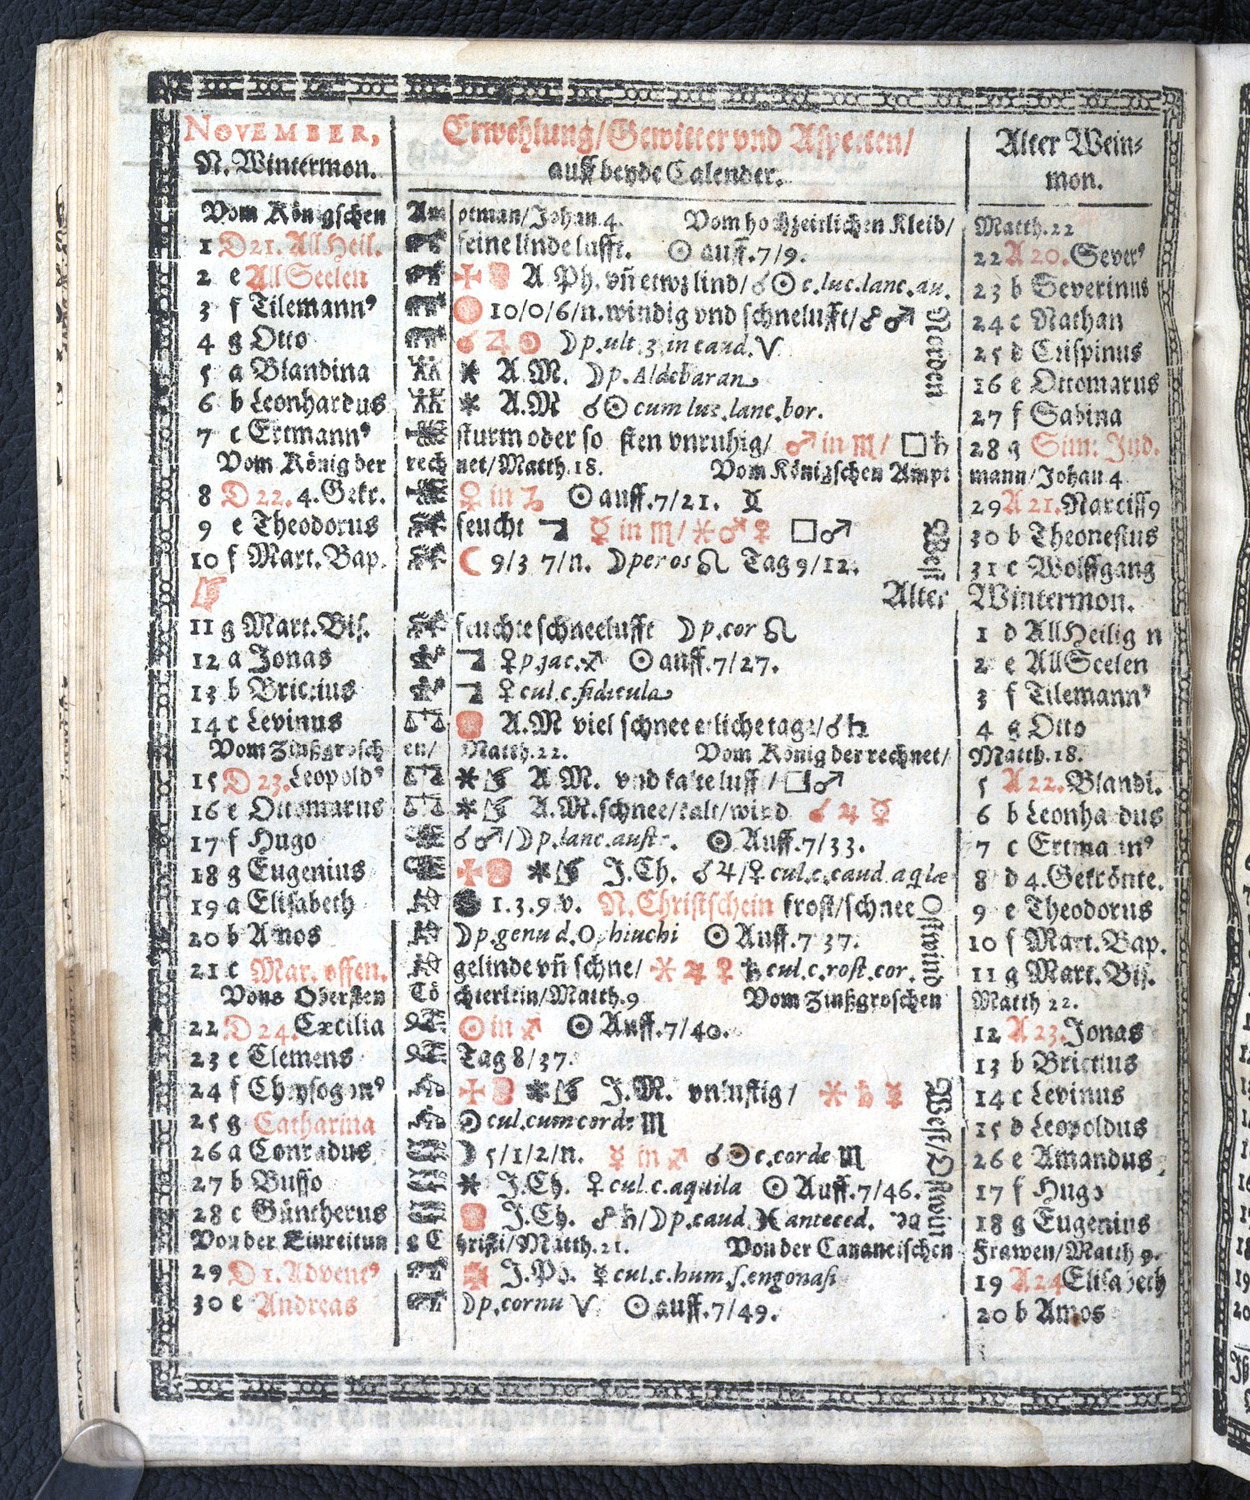 NOVEMBER, Erwehlung/Gewitter vnd Aspecten/ Alter Wein-
N. Wintermon. auff beyde Calender. mon.
Vom Königschen Amptman/Johan 4. Vom hochzeitlichen Kleid/ Matth.22
1 D 21. All Heil. feine linde lufft. ☉ auff.7/9. 22 A 20. Sever⁹
2 e All Seelen A Ph. vñ etwz lind/ ☌☉ c.luc.lanc.au. 23 b Severinus
3 f Tilemann⁹ 10/0/6/n. windig vnd schnelufft/ ☍♂ 24 c Nathan
4 g Otto ☌ ♃ ☉ ☽ p.ult.3.in caud.♈ 25 d Crispinus
5 a Blandina ✶ A.M. ☽ p.Aldebaran 16 e Ottomarus
6 b Leonhardus ✶ A.M ☌☉ cum luc.lanc.bor. 27 f Sabina
Norden
7 c Ertmann⁹ sturm oder so sten vnruhig/ ♂ in ♏/ □♄ 28 g Sim: Jud.
Vom König der rechnet/Matth.18. Vom Königschen Amptmann/Johan 4
8 D 22. 4.Gekr. ♀ in ♑ ☉ auff.7/21. 29 A 21. Narciss9
9 e Theodorus feucht ☿ in ♏/ ✶♂ ♀ □♂ 30 b Theonestus
10 f Mart. Bap. ☾ 9/3 7/n. ☽ per os ♌ Tag 9/12. 31 c Wolffgang
West
Alter Wintermon.
11 g Mart. Bis. feuchte schneelufft ☽ p.cor ♌ 1 d All Heilig n
12 a Jonas ♀ p.jac.♐ ☉ auff.7/27. 2 e All Seelen
13 b Briccius ♀ cul.c.fidicula 3 f Tilemann⁹
14 c Levinus A.M viel schnee etliche tage/ ☌♄ 4 g Otto
Vom Zinßgroschen/ Matth.22. Vom König der rechnet/ Matth.18.
15 D 23. Leopold⁹ ✶ A.M. vnd kalte lufft/ □♂ 5 A 22. Blandi.
16 e Ottomarus ✶ A.M. schnee/kalt/wind ☌ ♃ ☿ 6 b Leonhardus
17 f Hugo ☌♂/☽ p.lanc.austr. ☉ Auff.7/33. 7 c Ertmann⁹
18 g Eugenius ✶ J.Ch. ☌♃/♀ cul.c.caud.aqlæ 8 d 4.Gekrönte.
19 a Elisabeth 1.3.9.v. N.Christschein frost/schnee 9 e Theodorus
20 b Amos ☽ p.genu d.Ophiuchi ☉ Auff.7 37. 10 f Mart. Bap.
21 c Mar. offen. gelinde vñ schne/ ✶ ♃ ♀ ♄ cul.c.rost.cor. 11 g Mart. Bis.
Ostwind
Vons Obersten Töchterlein/Matth.9 Vom Zinßgroschen Matth 22.
22 D 24. Cæcilia ☉ in ♐ ☉ Auff.7/40. 12 A 23. Jonas
23 e Clemens Tag 8/37. 13 b Briccius
24 f Chrysogon⁹ ✶ J.M. vnlustig/ ✶ ♄ ☿ 14 c Levinus
25 g Catharina ☉ cul.cum corde ♏ 15 d Leopoldus
26 a Conradus ☽ 5/1/2/n. ☿ in ♐ ☌☉ c.corde ♏ 26 e Amandus
27 b Busso ✶ J.Ch. ♀ cul.c.aquila ☉ Auff.7/46. 17 f Hugo
28 c Güntherus J.Ch. ☍♄/☽ p.caud.♓ anteced. 18 g Eugenius
Von der Einreitung Christi/Matth.21. Von der Cananeischen Frawen/Matth 9.
29 D 1. Advent⁹ J.Ph. ☿ cul.c.hum.s.engonasi 19 A 24 Elisabeth
30 e Andreas ☽ p.cornu ♈ ☉ auff.7/49. 20 b Amos